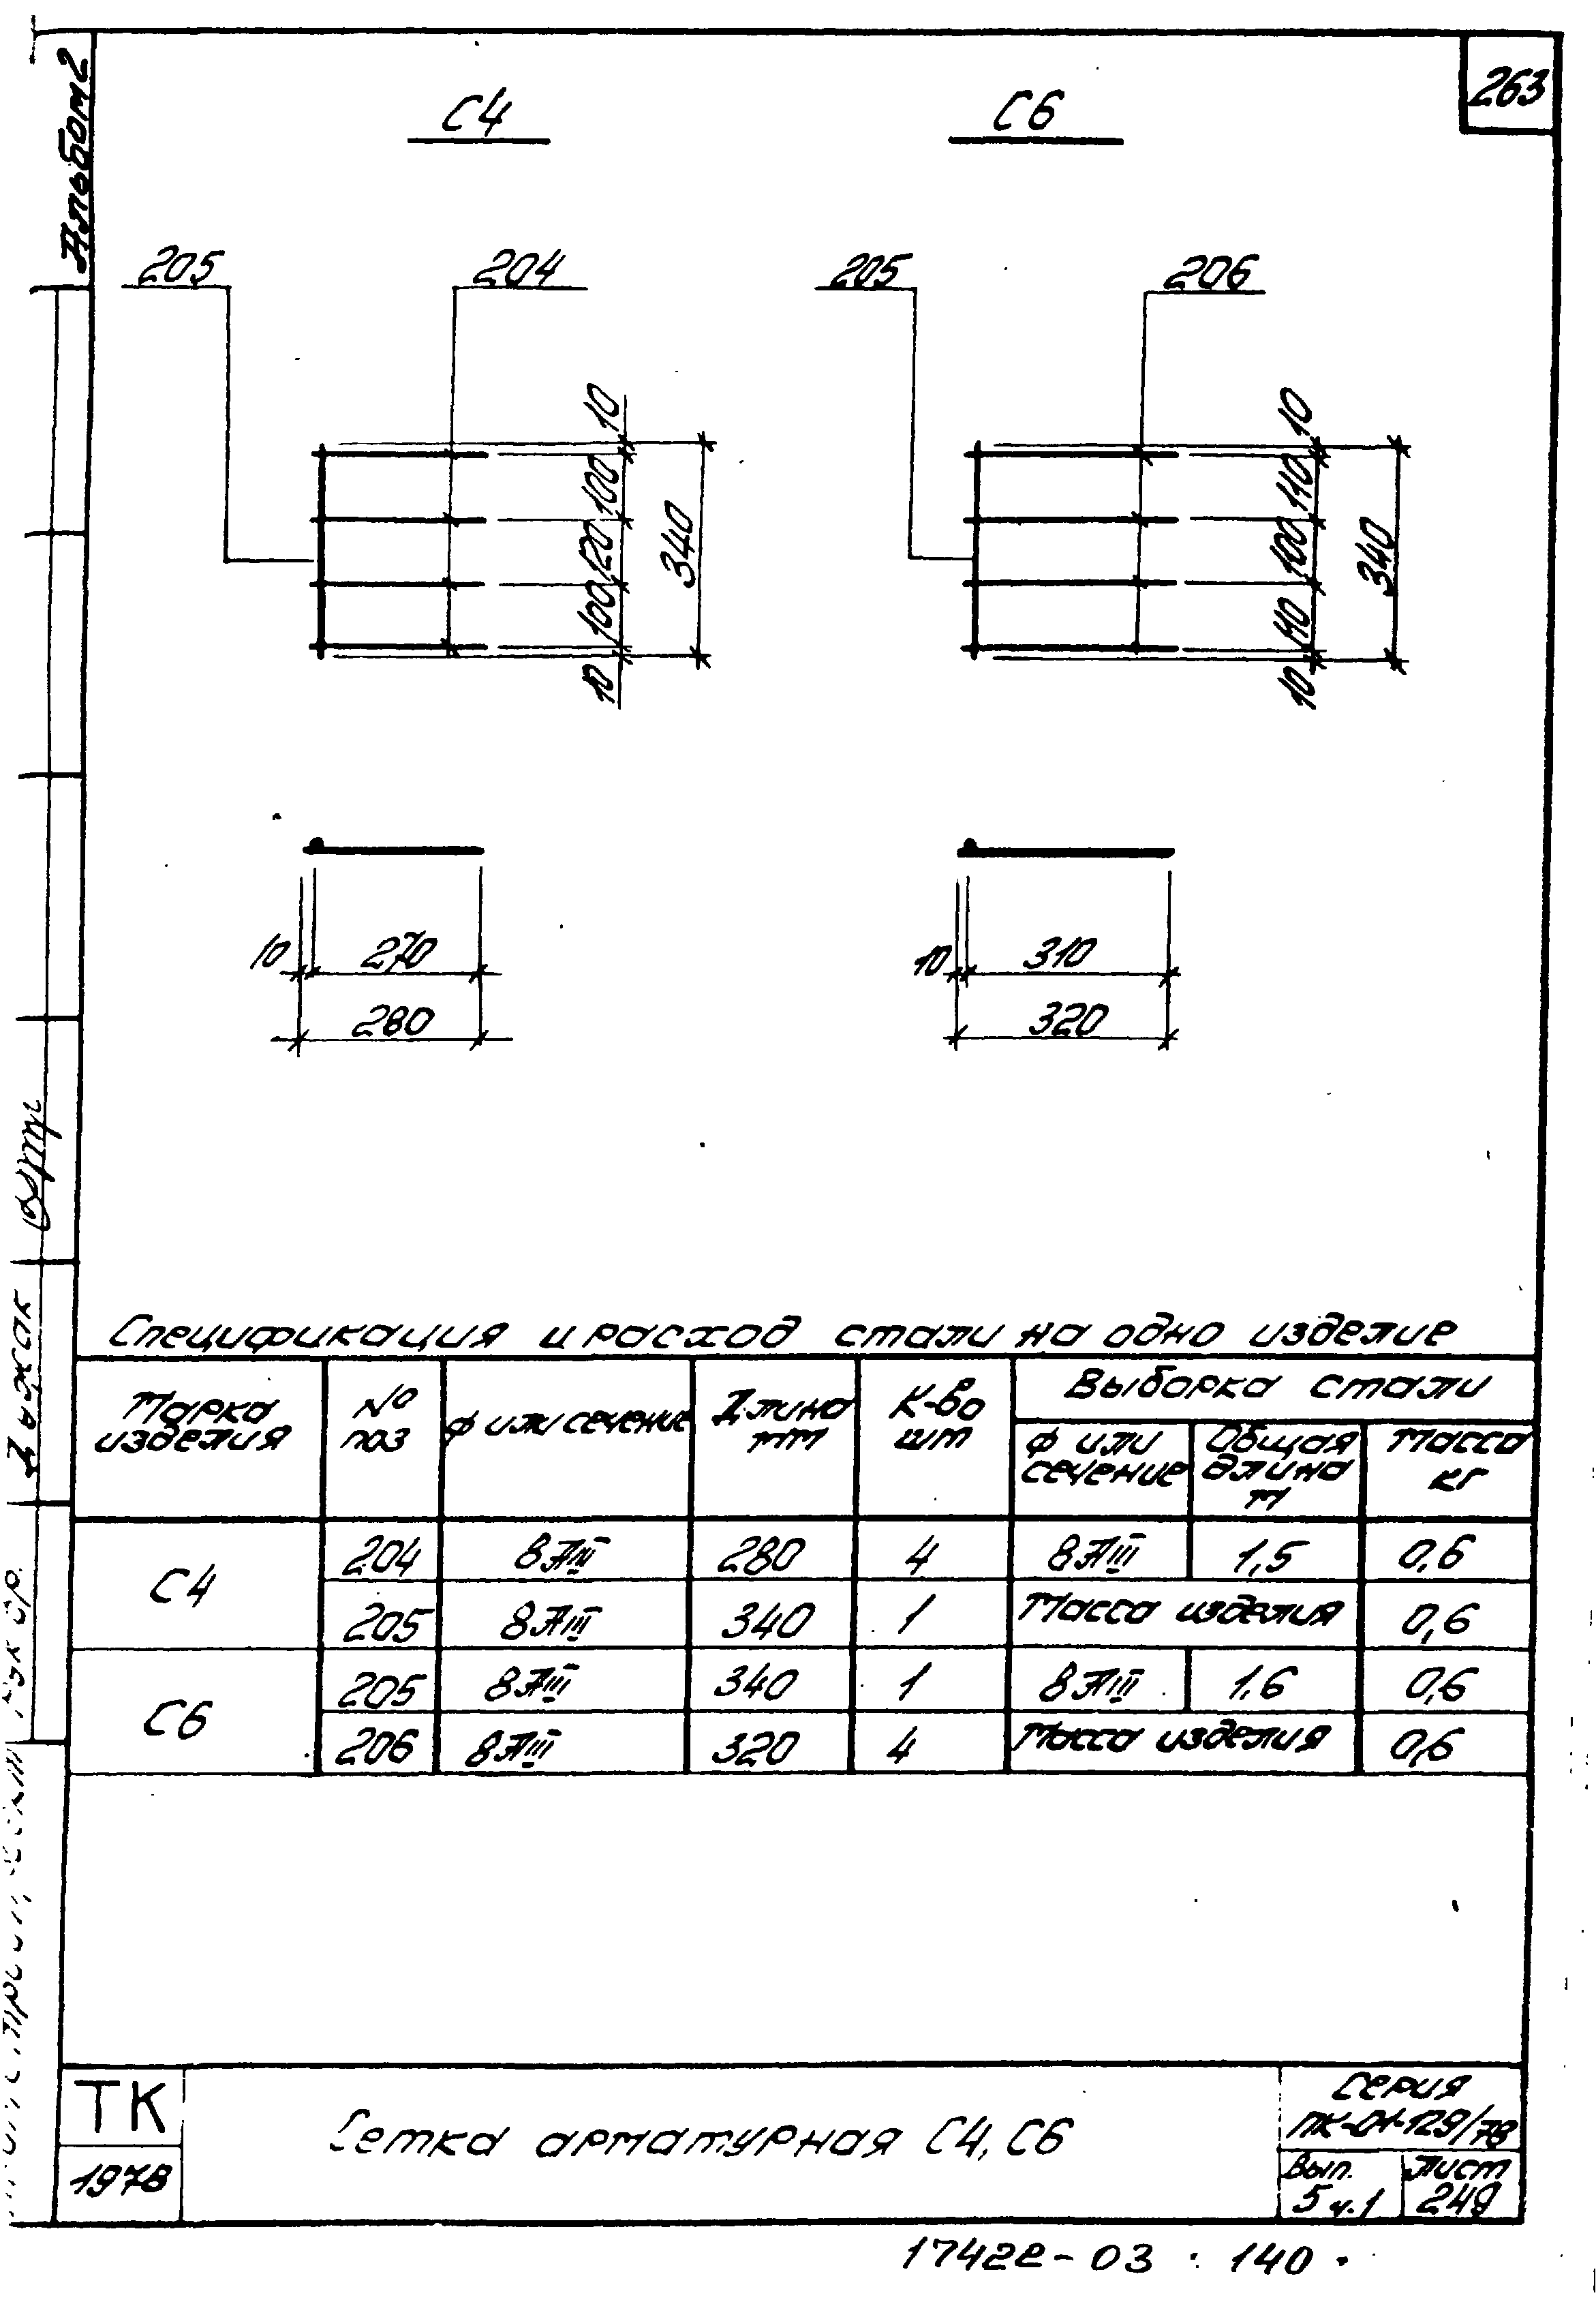 Альбом 2
263
С4
С6
205
204
205
206
10
100
120
100
10
340
10
110
100
110
10
340
10
270
280
10
310
320
Спецификация и расход стали на одно изделие
Марка изделия
№ поз
Ф или сечение
Длина мм
К-во шт
Выборка стали
Ф или сечение
Общая длина м
Масса кг
С4
204 8АIII 280 4 8АIII 1,5 0,6
205 8АIII 340 1 Масса изделия 0,6
С6
205 8АIII 340 1 8АIII 1.6 0,6
206 8АIII 320 4 Масса изделия 0,6
ТК
1978
Сетка арматурная С4, С6
Серия
ПК-01-129/78
Вып.
5 ч.1
Лист
249
17422-03
140
Рук гр.